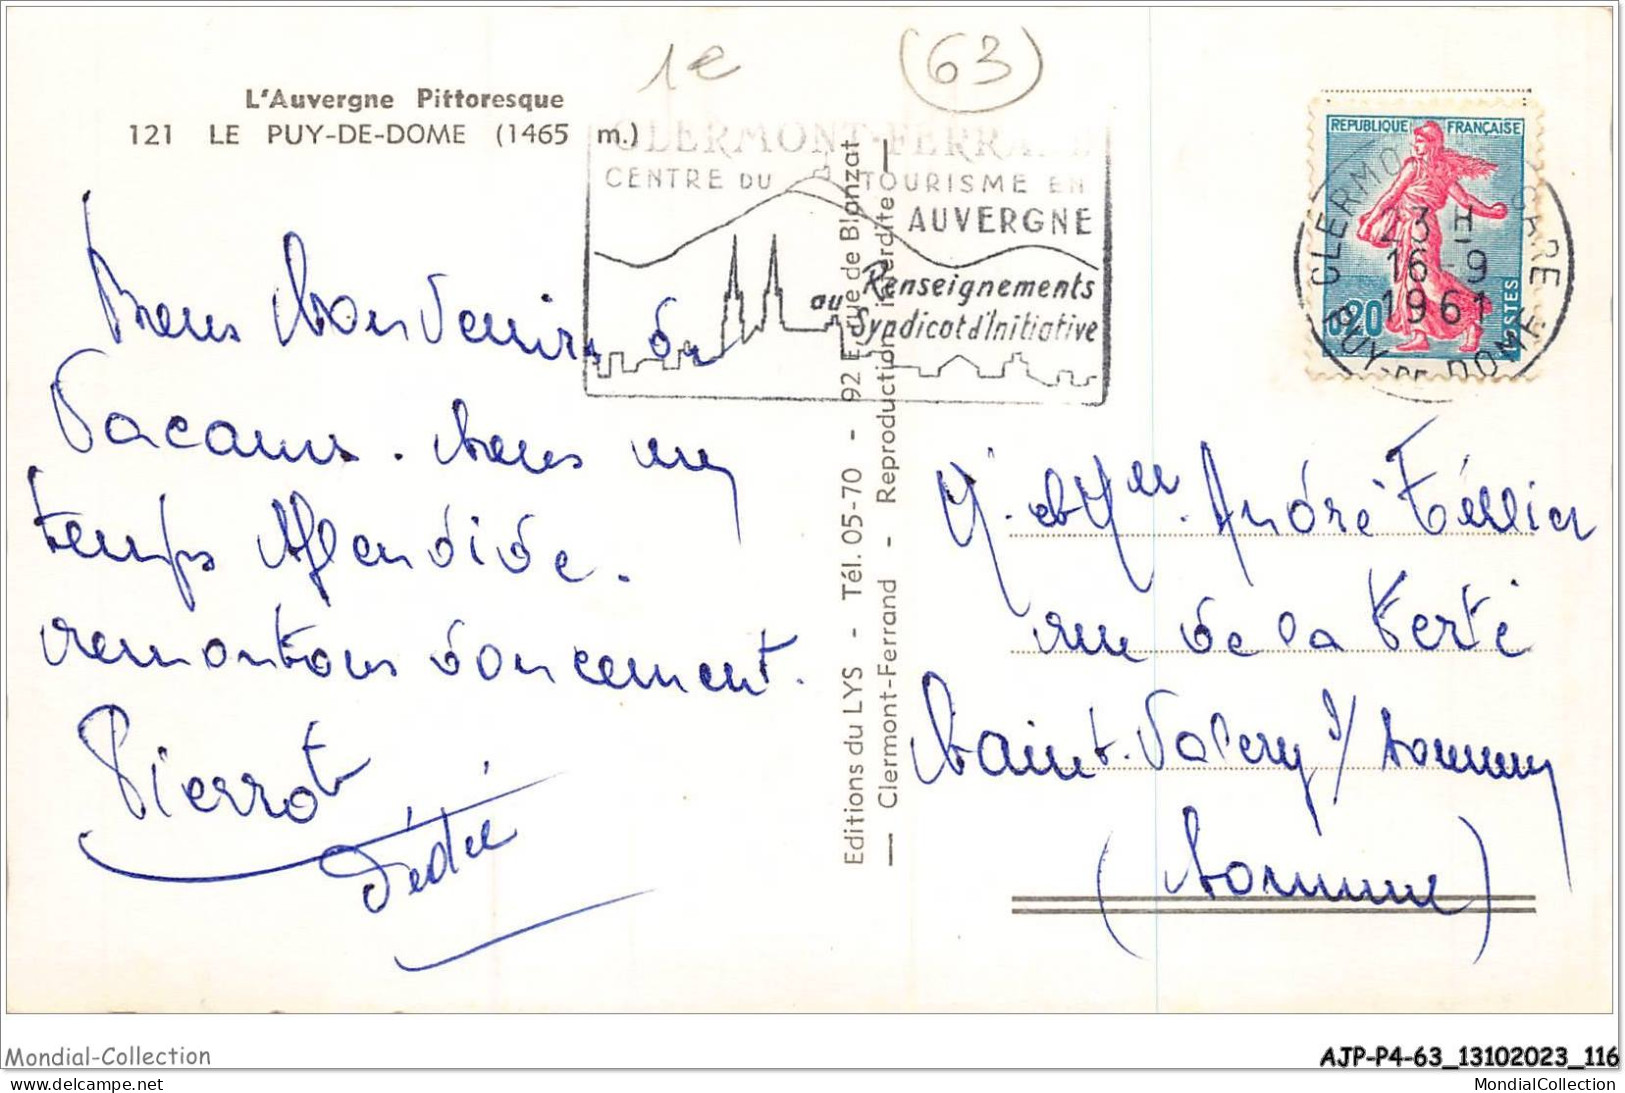 1e
(63)
L'Auvergne Pittoresque
121 LE PUY-DE-DOME (1465 m.)
CLERMONT-FERRAND
CENTRE DU TOURISME EN
AUVERGNE
Renseignements
au Syndicat d'Initiative
REPUBLIQUE FRANÇAISE
0,20
POSTES
CLERMONT GARE
23 H
16-9
1961
PUY-DE-DOME
Bons Souvenirs de
Vacances. Avons un
temps splendide.
remontons doucement.
Pierrot
Dédée
Editions du LYS - Tél. 05-70 - 92 E, rue de Blanzat
— Clermont-Ferrand - Reproduction interdite —
Mr. et Mme. André Tellier
rue de la Ferté
Saint-Valery s/ Somme
(Somme)
Mondial-Collection
AJP-P4-63_13102023_116
www.delcampe.net
MondialCollection